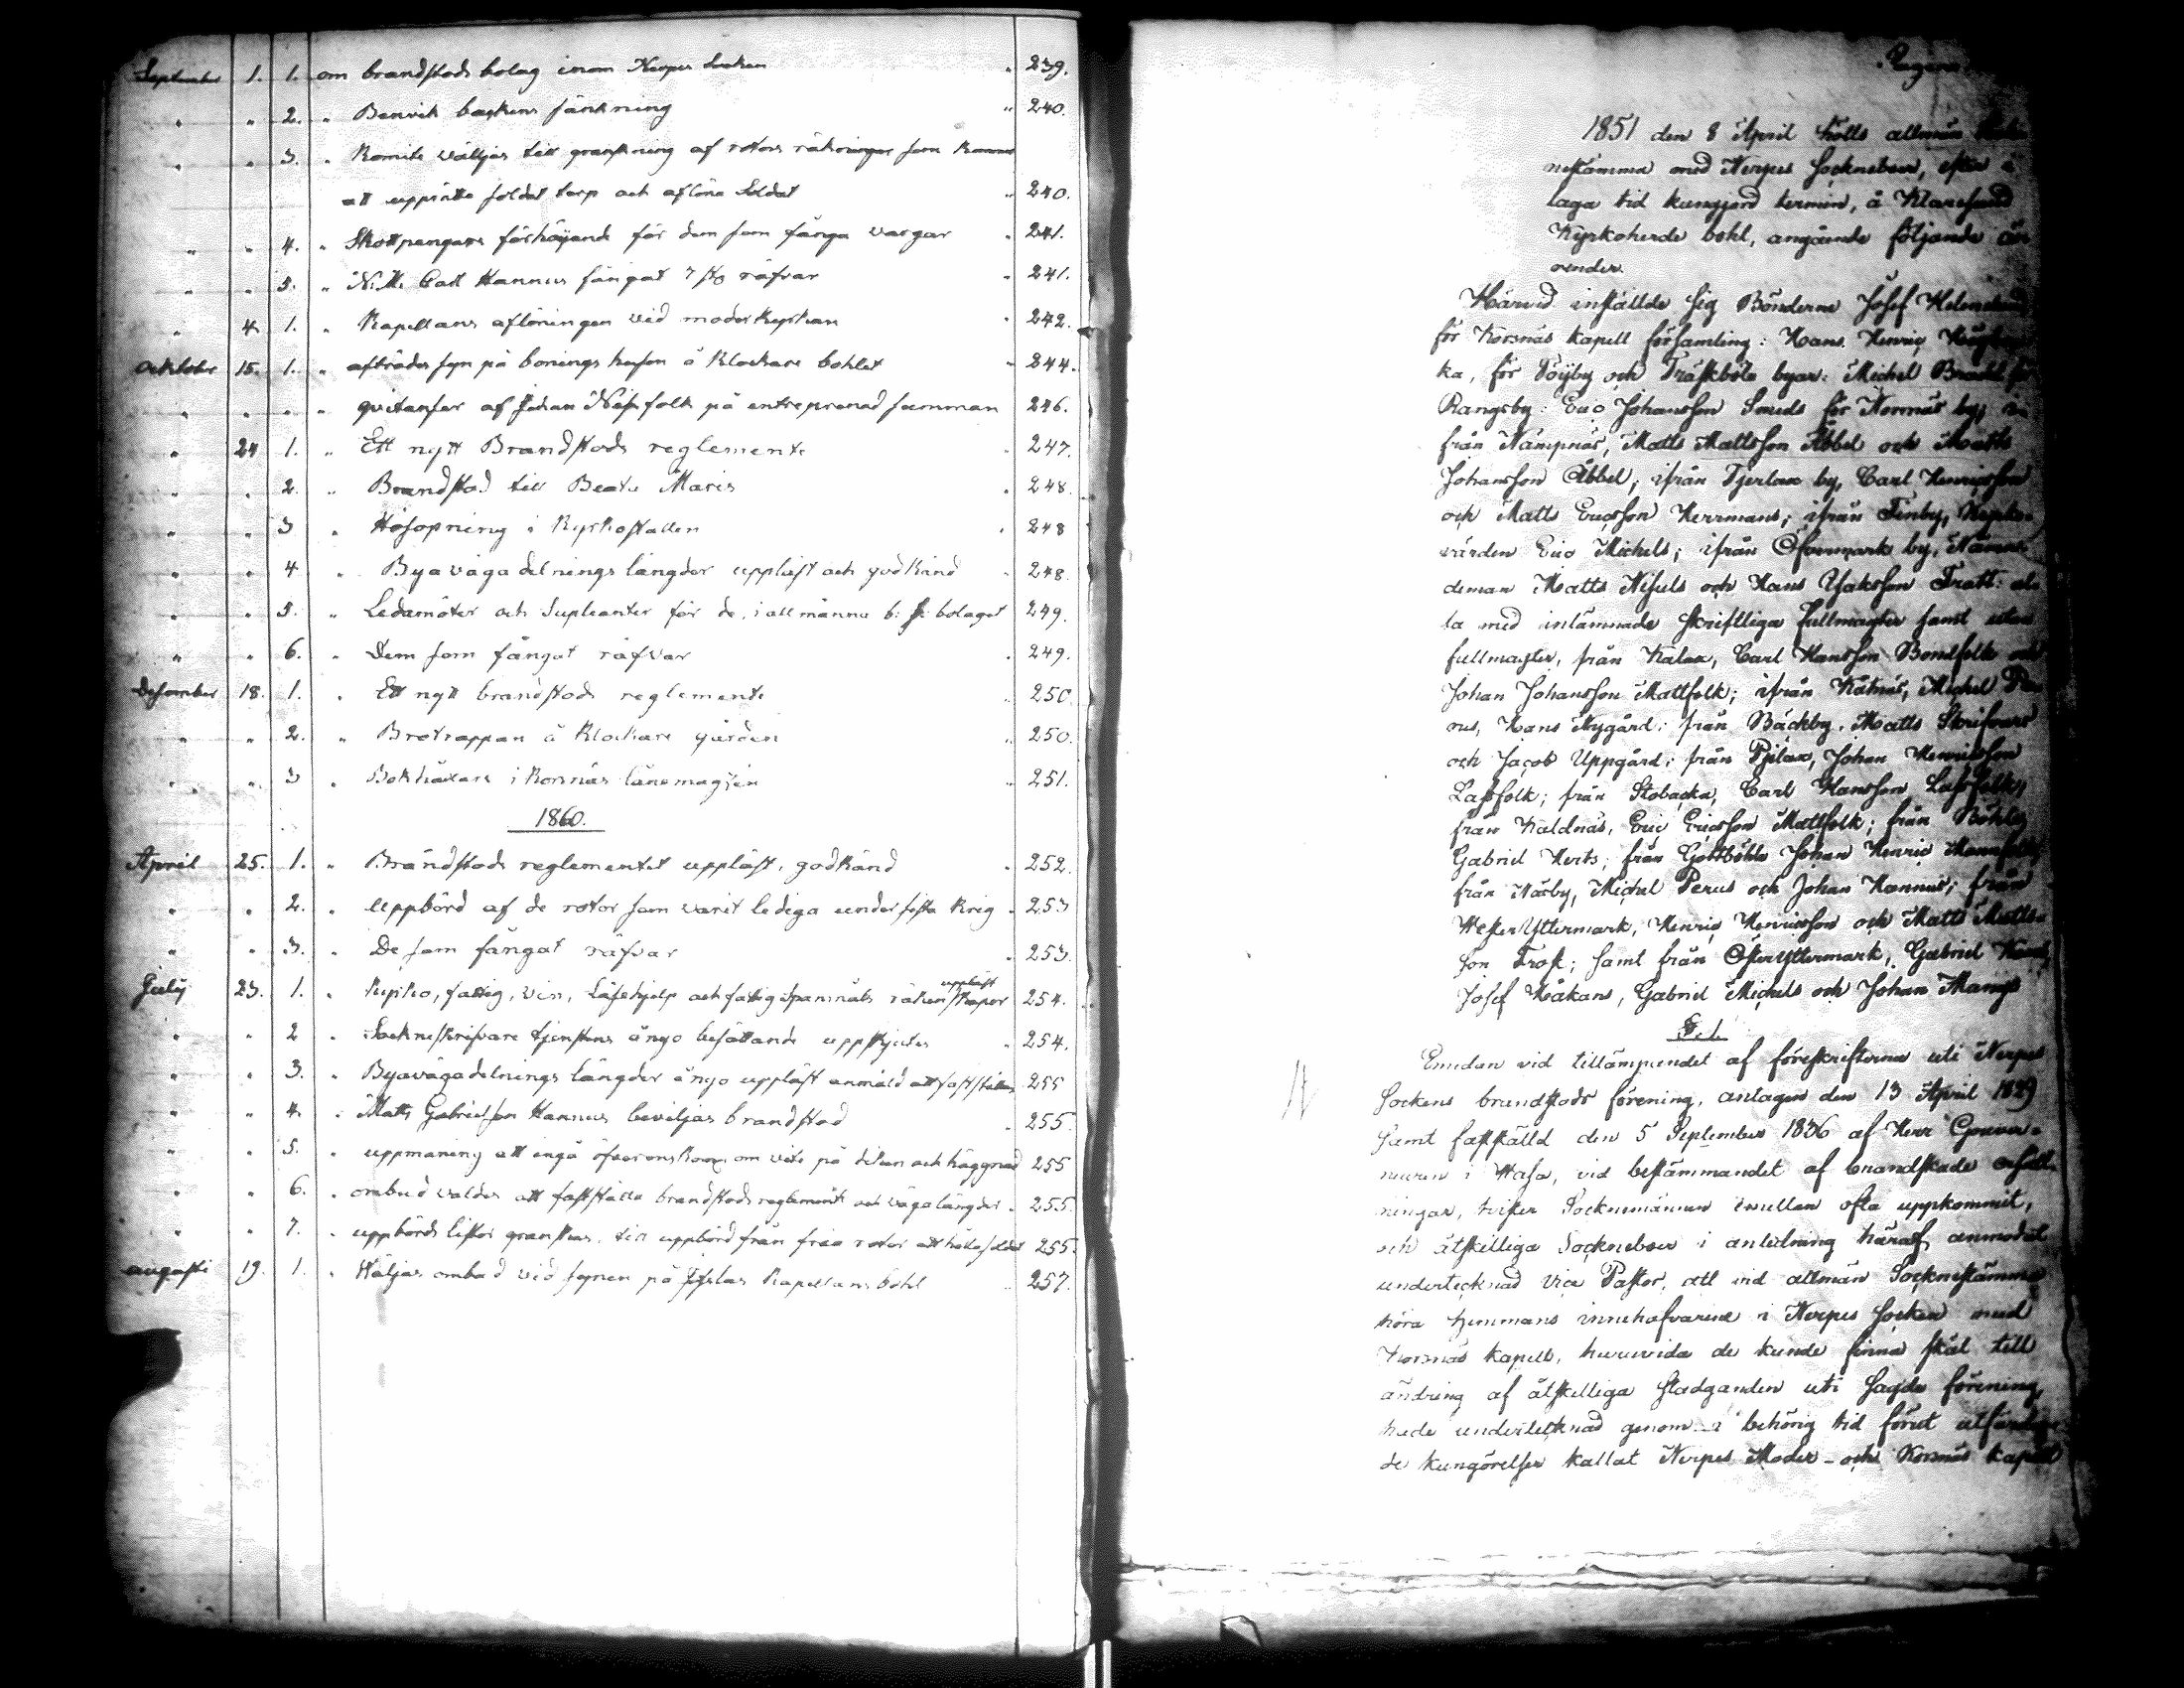 September 1. 1. om brandstods bolag inom Nerpes Socken " 239.
" " 2. " Benvik backens sänkning " 240.
" " 3. " Komite väljas till granskning af rotens räkningar som
att uppsätta soldat torp och aflöna Soldat " 240.
" " 4. " Skottpengars förhöjande för dem som fånga vargar " 241.
" " 5. " Carl Hannus fångat 7 st räfvar " 241.
" 4 1. " Kapellans aflöningen vid moderkyrkan " 242.
October 15. 1. " afträdes syn på bonings husen å Klockare bohlet " 244.
" " " " qvitanser af Johan Näsfolk på entreprenad summan 246.
" 24 1. " Ett nytt Brandstods reglemente " 247.
" " 2. " Brandstod till Beata Maris " 248.
" " 3 " i Kyrkostallen " 248
" " 4 " Byavägadelnings längder uppläst och godkänd " 248.
" " 5. " Ledamöter och Supleanter för de i allmänna b: s: bolaget 249.
" " 6. " Dem som fångat räfvar " 249.
December 18. 1. " Ett nytt brandstods reglemente " 250
" " 2. " Brotrappan å Klockare gården " 250.
" " 3 " Bokhållare i Korsnäs lånemagasin " 251.
1860.
April 25. 1. " Brandstods reglementet uppläst, godkänd " 252.
" " 2. " Uppbörd af de rotor som varit lediga under sista Krig " 253
" " 3. " De som fångat räfvar " 253.
July 23. 1. " Kyrko, fattig, vin, Läsehjelp och fattigspanmåls räkenskaper uppläst 254.
" " 2 " Sockneskrifvare tjenstens ånyo besättande uppskjutes " 254.
" " 3. " Byavägadelnings längder ånyo uppläst anmäld att fastställas 255
" " 4. " Matts Gabrielsson Hannus beviljas brandstod " 255.
" " 5. " uppmaning att ingå öfverenskom om vite på dikan och häggnad 255
" " 6. " ombud valdes att fastställa brandstods reglement och vägalängder " 255.
" " 7. " uppbörds listor granskas, till uppbörd från fria rotor att hålla soldat 255.
augusti 19. 1. " Wäljas ombud vid synen på Kapellans bohl " 257.
1851 den 8 April hölls allmän
nestämma med Nerpes Sockneboer, efter i
laga tid kungjord termin, å
Kyrkoherde bohl, angående följande är
ender.
Härvid inställde sig Bönderne Josef
för Korsnäs kapell församling: Hans Henric
ka, för Töjby och Träskböle byar: Michel
Rangsby: Eric Johansson Smeds för Norrnäs by;
från Nämpnäs, Matts Mattsson Åbbel och Matts
Johansson Åbbel; ifrån Tjerlax by, Carl Henricsson
och Matts Ericsson Herrmans; ifrån Finby, Kyrko-
värden Eric Michels; ifrån Öfvermark by, Nämn
deman Matts Nisuls och Hans Isaksson Tratt: al-
la med inlämnade skriftliga fullmagter samt utan
fullmagter, från Kalax, Carl Hansson Bondfolk och
Johan Johansson Mattfolk; ifrån Kåtnäs, Michel
nus, Hans Nygård: från Bäckby, Matts Skrifvars
och Jacob Uppgård: från Pjelax, Johan Henricsson
Lassfolk; från Stobacka, Carl Hansson Lassfolk,
från Kaldnäs, Eric Ericsson Mattfolk; från Böhle
Gabriel Herts; från Gottböhle Johan Henric
från Näsby, Michel Perus och Johan Hannus; från
Wester Yttermark, Henric Henricsson och Matts Matts-
son Trost; samt från Öster Yttermark, Gabriel
Josef Håkans, Gabriel Michels och Johan Mangs
§. 1.
Emedan vid tillämpandet af föreskrifterna uti Nerpes
Sockens brandstods förening, antagen den 13 April 1829
samt fastställd den 5 September 1836 af Herr Gouver-
neuren i Wasa, vid bestämmandet af brandskade ersätt-
ningar, tvister Socknemännen emellan ofta uppkommit,
och åtskilliga Socknebor i anledning häraf, anmodat
undertecknad Vice Pastor, att vid allmän Socknestämma
höra hemmans innehafvarene i Nerpes Socken med
Korsnäs kapell, huruvida de kunde finna skäl till
ändring af åtskilliga stadganden uti sagde förening,
hade undertecknad genom i behörig tid förut utfärda-
de kungörelser kallat Nerpes Moder- och Korsnäs kapell